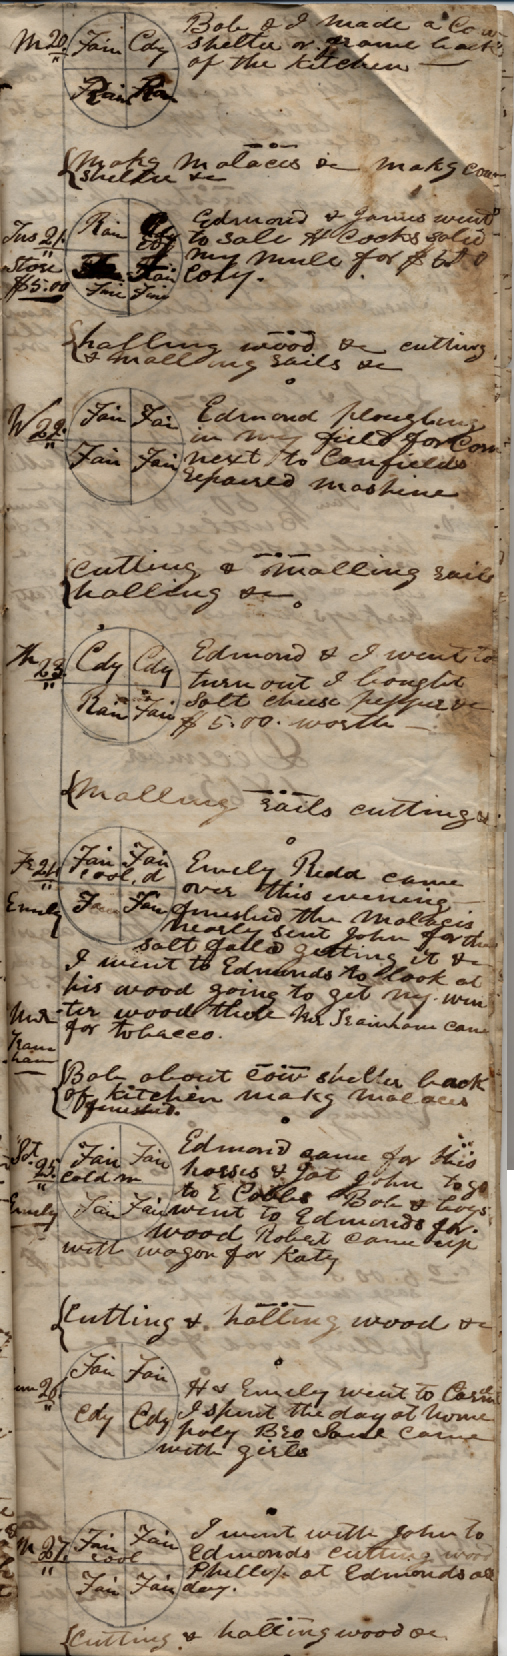 M 20 Fair Cdy Bob & I made a Cow
shelter or frame back
of the kitchen
Rain
{Makg Malaces &c makg cow
shelter &c
Tus 21 Rain Cdy Edmond & James went
to sale H Cocks sold
store Fair my mule for $
$5.00 Fair Fair Cdy.
{halling wood &c cutting
& malling rails &c
W 22 Fair Fair Edmond ploughing
in my field for Corn
Fair Fair next to Canfields
repaired mashine
{cutting & malling rails
halling &c
Th 23 Cdy Cdy Edmond & I went to
turn out I bought
Rain Fair salt cheese pepper &c
$5.00. worth
{Malling rails cutting &
Fr 24 Fair Fair Emely Redd came
cool, d over this evening
Emely Fair Fair finished the Malacis
nearly sent John for the
salt getting it &c
I went to Edmonds to look at
his wood going to get my win
ter wood there Mr Trainham came
for tobacco.
Mr
Train
ham
{Bob about cow shelter back
of kitchen makg malaces
finished.
Sat 25 Fair Fair Edmond came for his
cold m horses & got John to go
to E Cobbs Bob & boys
Emely Fair Fair went to Edmonds for
wood Robert came up
with wagon for Katy
{Cutting & halling wood &c
26 Fair Fair H & Emely went to
Cdy Cdy I spent the day at home
poly Bro came
with girls
M 27 Fair Fair I went with John to
cool Edmonds cutting wood
Fair Fair Phillip at Edmonds all
day.
{Cutting & halling wood &c